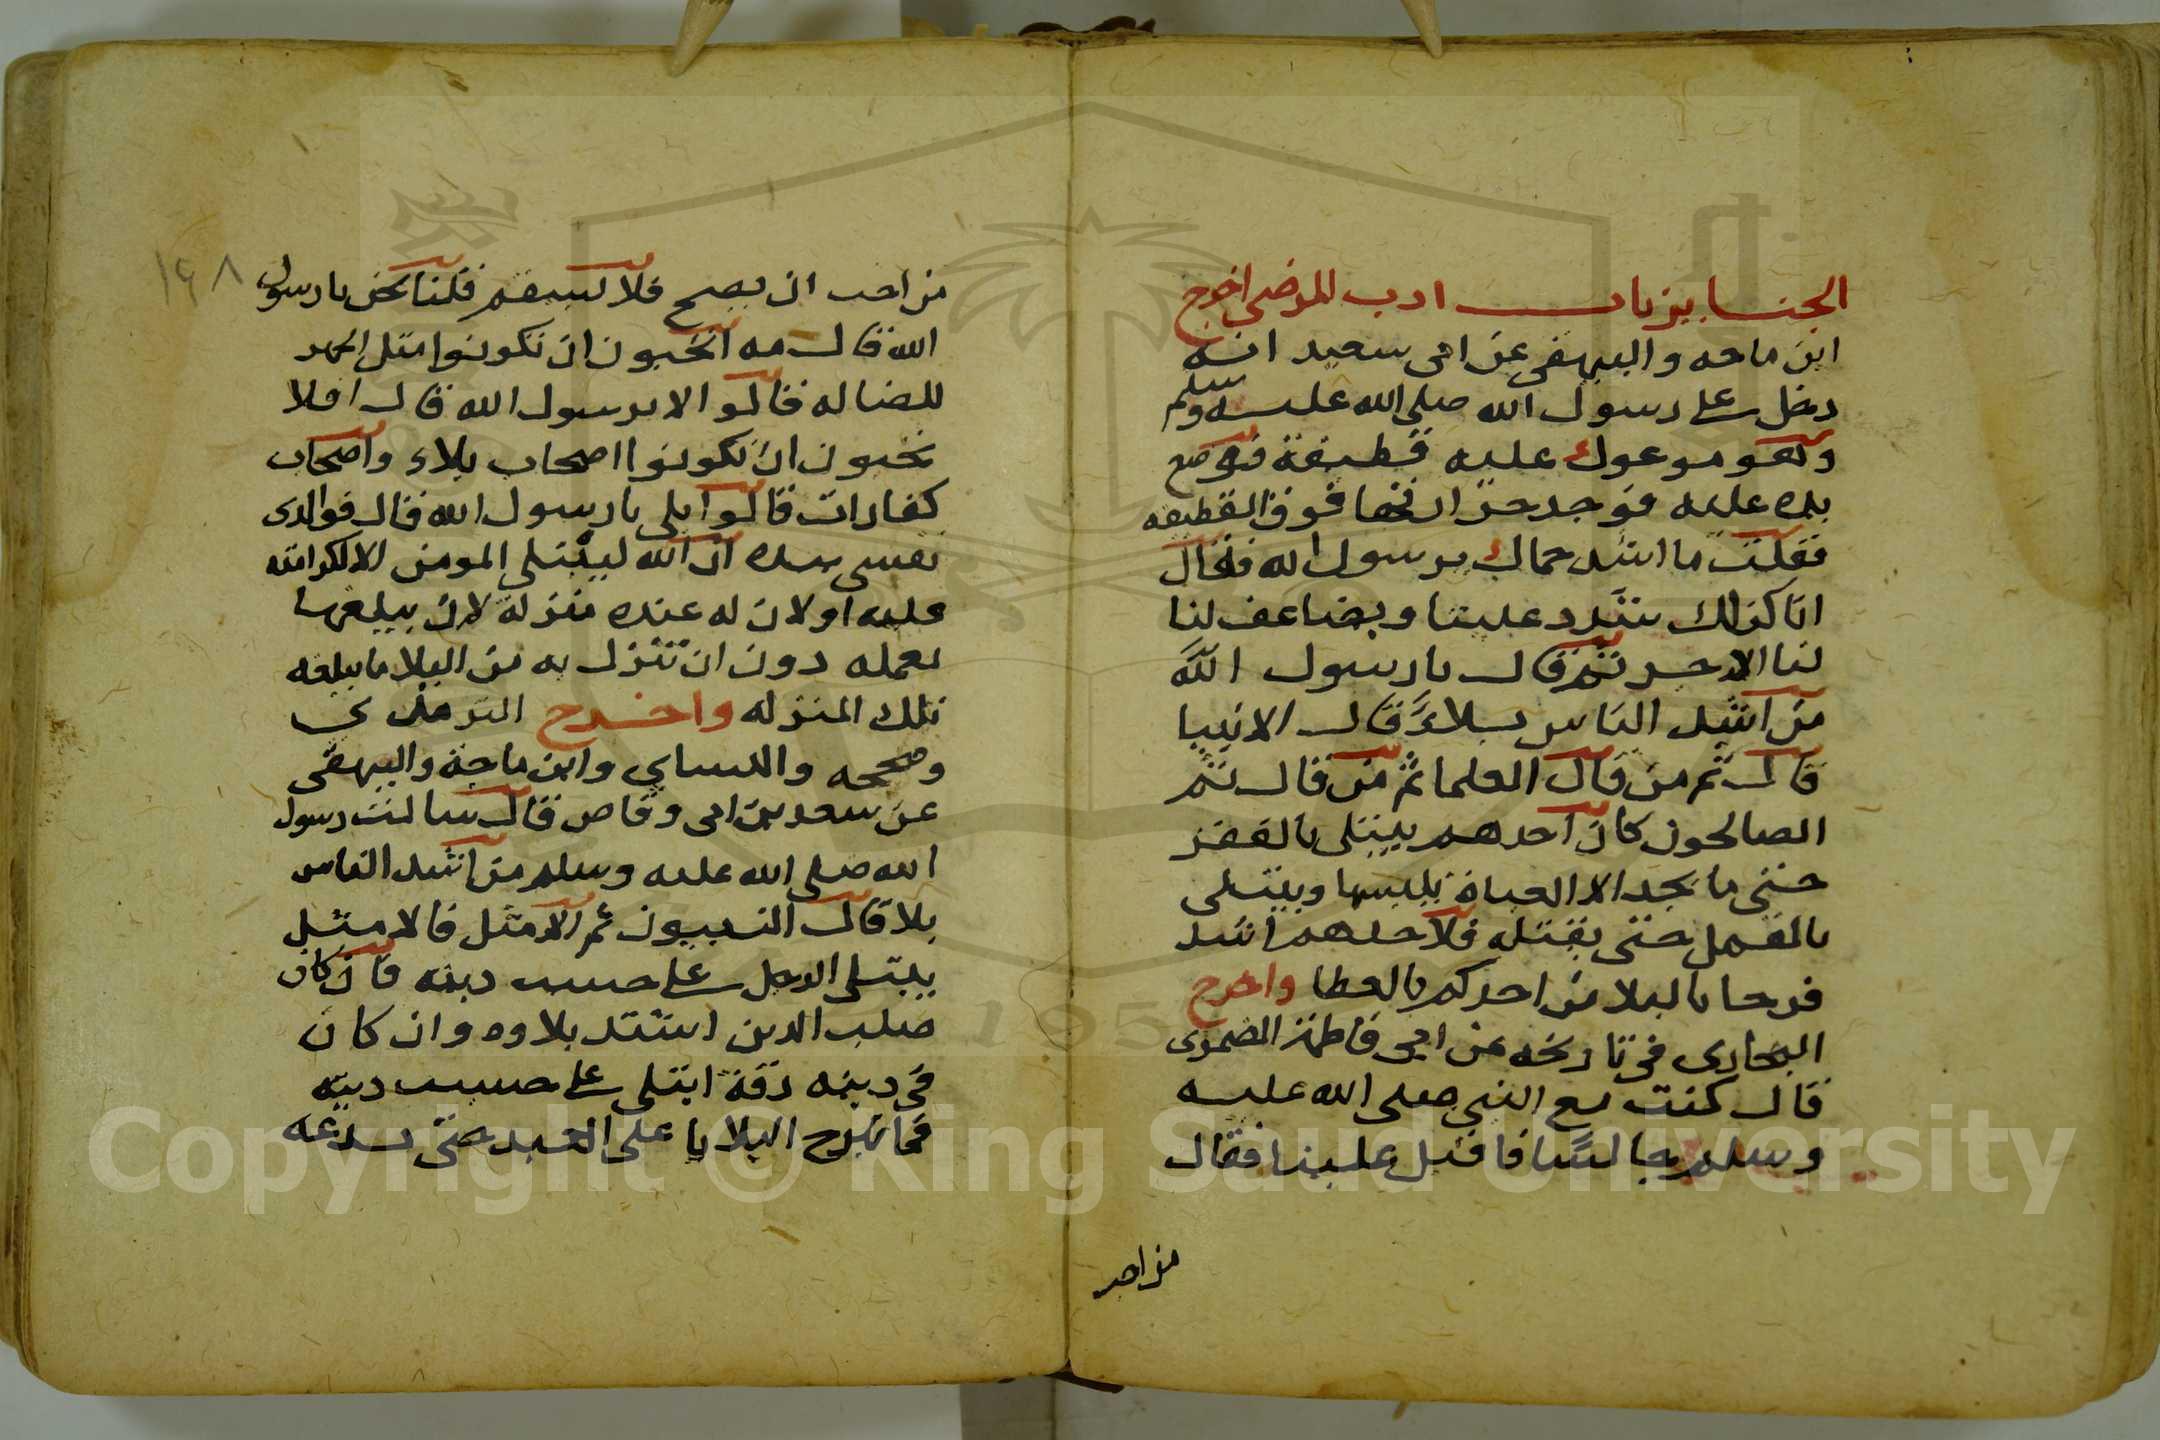 الجنايز باب ادب المرضى اخرج
ابن ماجه والبيهقى عن ابى سعيد انه
دخل على رسول الله صلى الله عليه وسلم
وهو موعوك عليه قطيفة فوضع
يده عليه فوجد حرارتها فوق القطيفه
فقلت ما اشد حماك يرسول الله فقال
انا كذلك يشدد علينا ويضاعف لنا
لنا الاجر ثم قال يا رسول الله
من اشد الناس بلاءً قال الانبيا
قال ثم من قال العلما ثم من قال ثم
الصالحون كان احدهم يبتلى بالفقر
حتى ما يجد الا العباة يلبسها ويبتلى
بالقمل حتى يقتله فلاحدهم اشد
فرحا بالبلا من احدكم بالعطا واخرج
البخارى فى تاريخه عن ابى فاطمة الضمرى
قال كنت مع النبى صلى الله عليه
وسلم جالسًا فاقبل علينا فقال
من احب
١٤٨
من احب ان يصح فلا يسقم قلنا نحن يا رسول
الله قال مه اتحبون ان تكونوا مثل الحمر
الضاله قالوا لا يرسول الله قال افلا
تحبون ان تكونوا اصحاب بلاء واصحاب
كفارات قالوا بلى يا رسول الله قال فوالدى
نفسى بيده ان الله ليبتلى المومن الا لكرامته
عليه او لان له عنده منزله لان يبلغها
بعمله دون ان تنزل به من البلا ما يبلغه
تلك المنزله واخرج الترمذى
وصححه والنساي وابن ماجة والبيهقى
عن سعد بن ابى وقاص قال سالت رسول
الله صلى الله عليه وسلم من اشد الناس
بلا قال النبيون ثم الامثل فالامثل
يبتلى الرجل على حسب دينه فان كان
صلب الدين اشتد بلاوه وان كان
فى دينه رقة ابتلى على حسب دينه
فما تبرح البلايا على العبد حتى تدعه
Copyright © King Saud University
1957